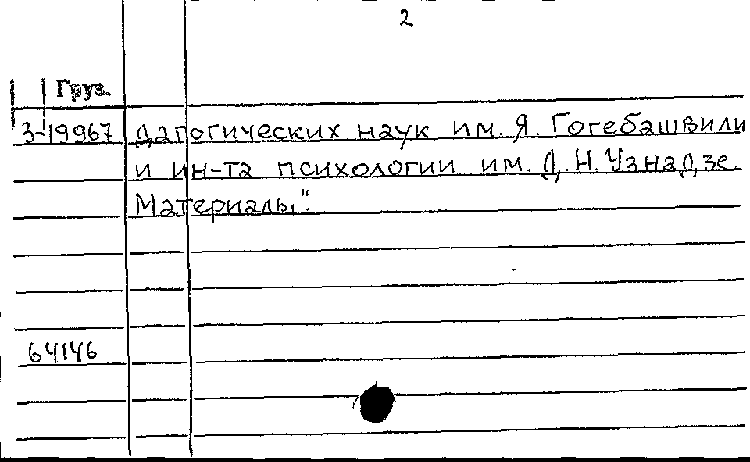 2
Груз.
3-19967 дагогических наук им. Я. Гогебашвили
и ин-та психологии им. Д. Н. Узнадзе.
Материалы".
64146